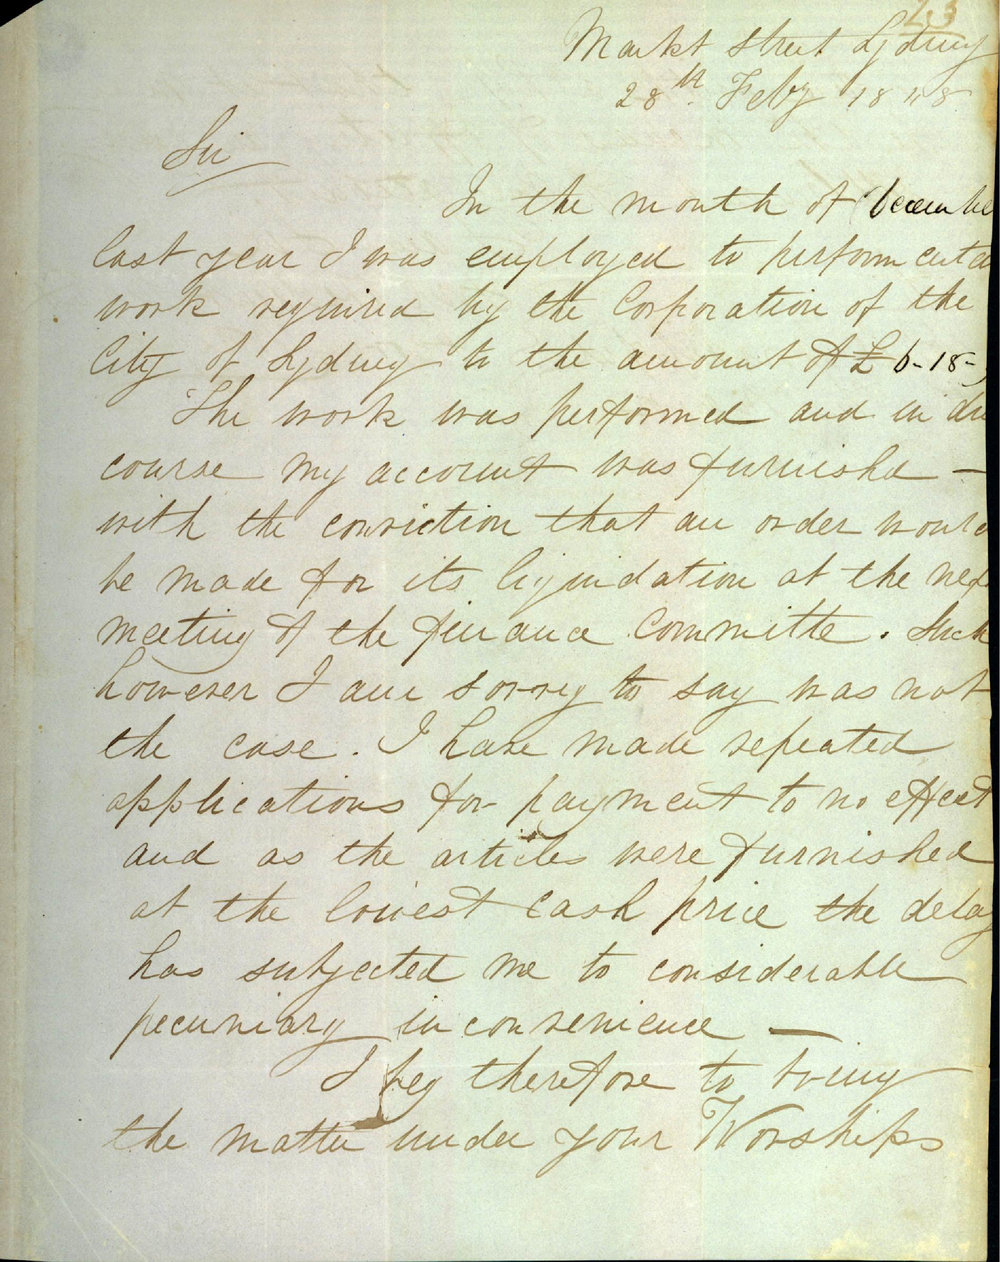 23
Markt Street Sydney
28th Feby 1848
Sir
In the month of Decembe
last year I was employed to perform certa
work required by the Corporation of the
City of Sydney to the amount of £ 6-18-
The work was performed and in du
course my account was furnishd —
with the conviction that an order would
be made for its liquidation at the next
meeting of the finance Committe. Such
however I am sorry to say was not
the case. I have made repeated
applications for payment to no effect
and as the articles were furnished
at the lowest cash price the delay
has subjected me to considerable
pecuniary inconvenience —
I beg therefore to bring
the matter under your Worships